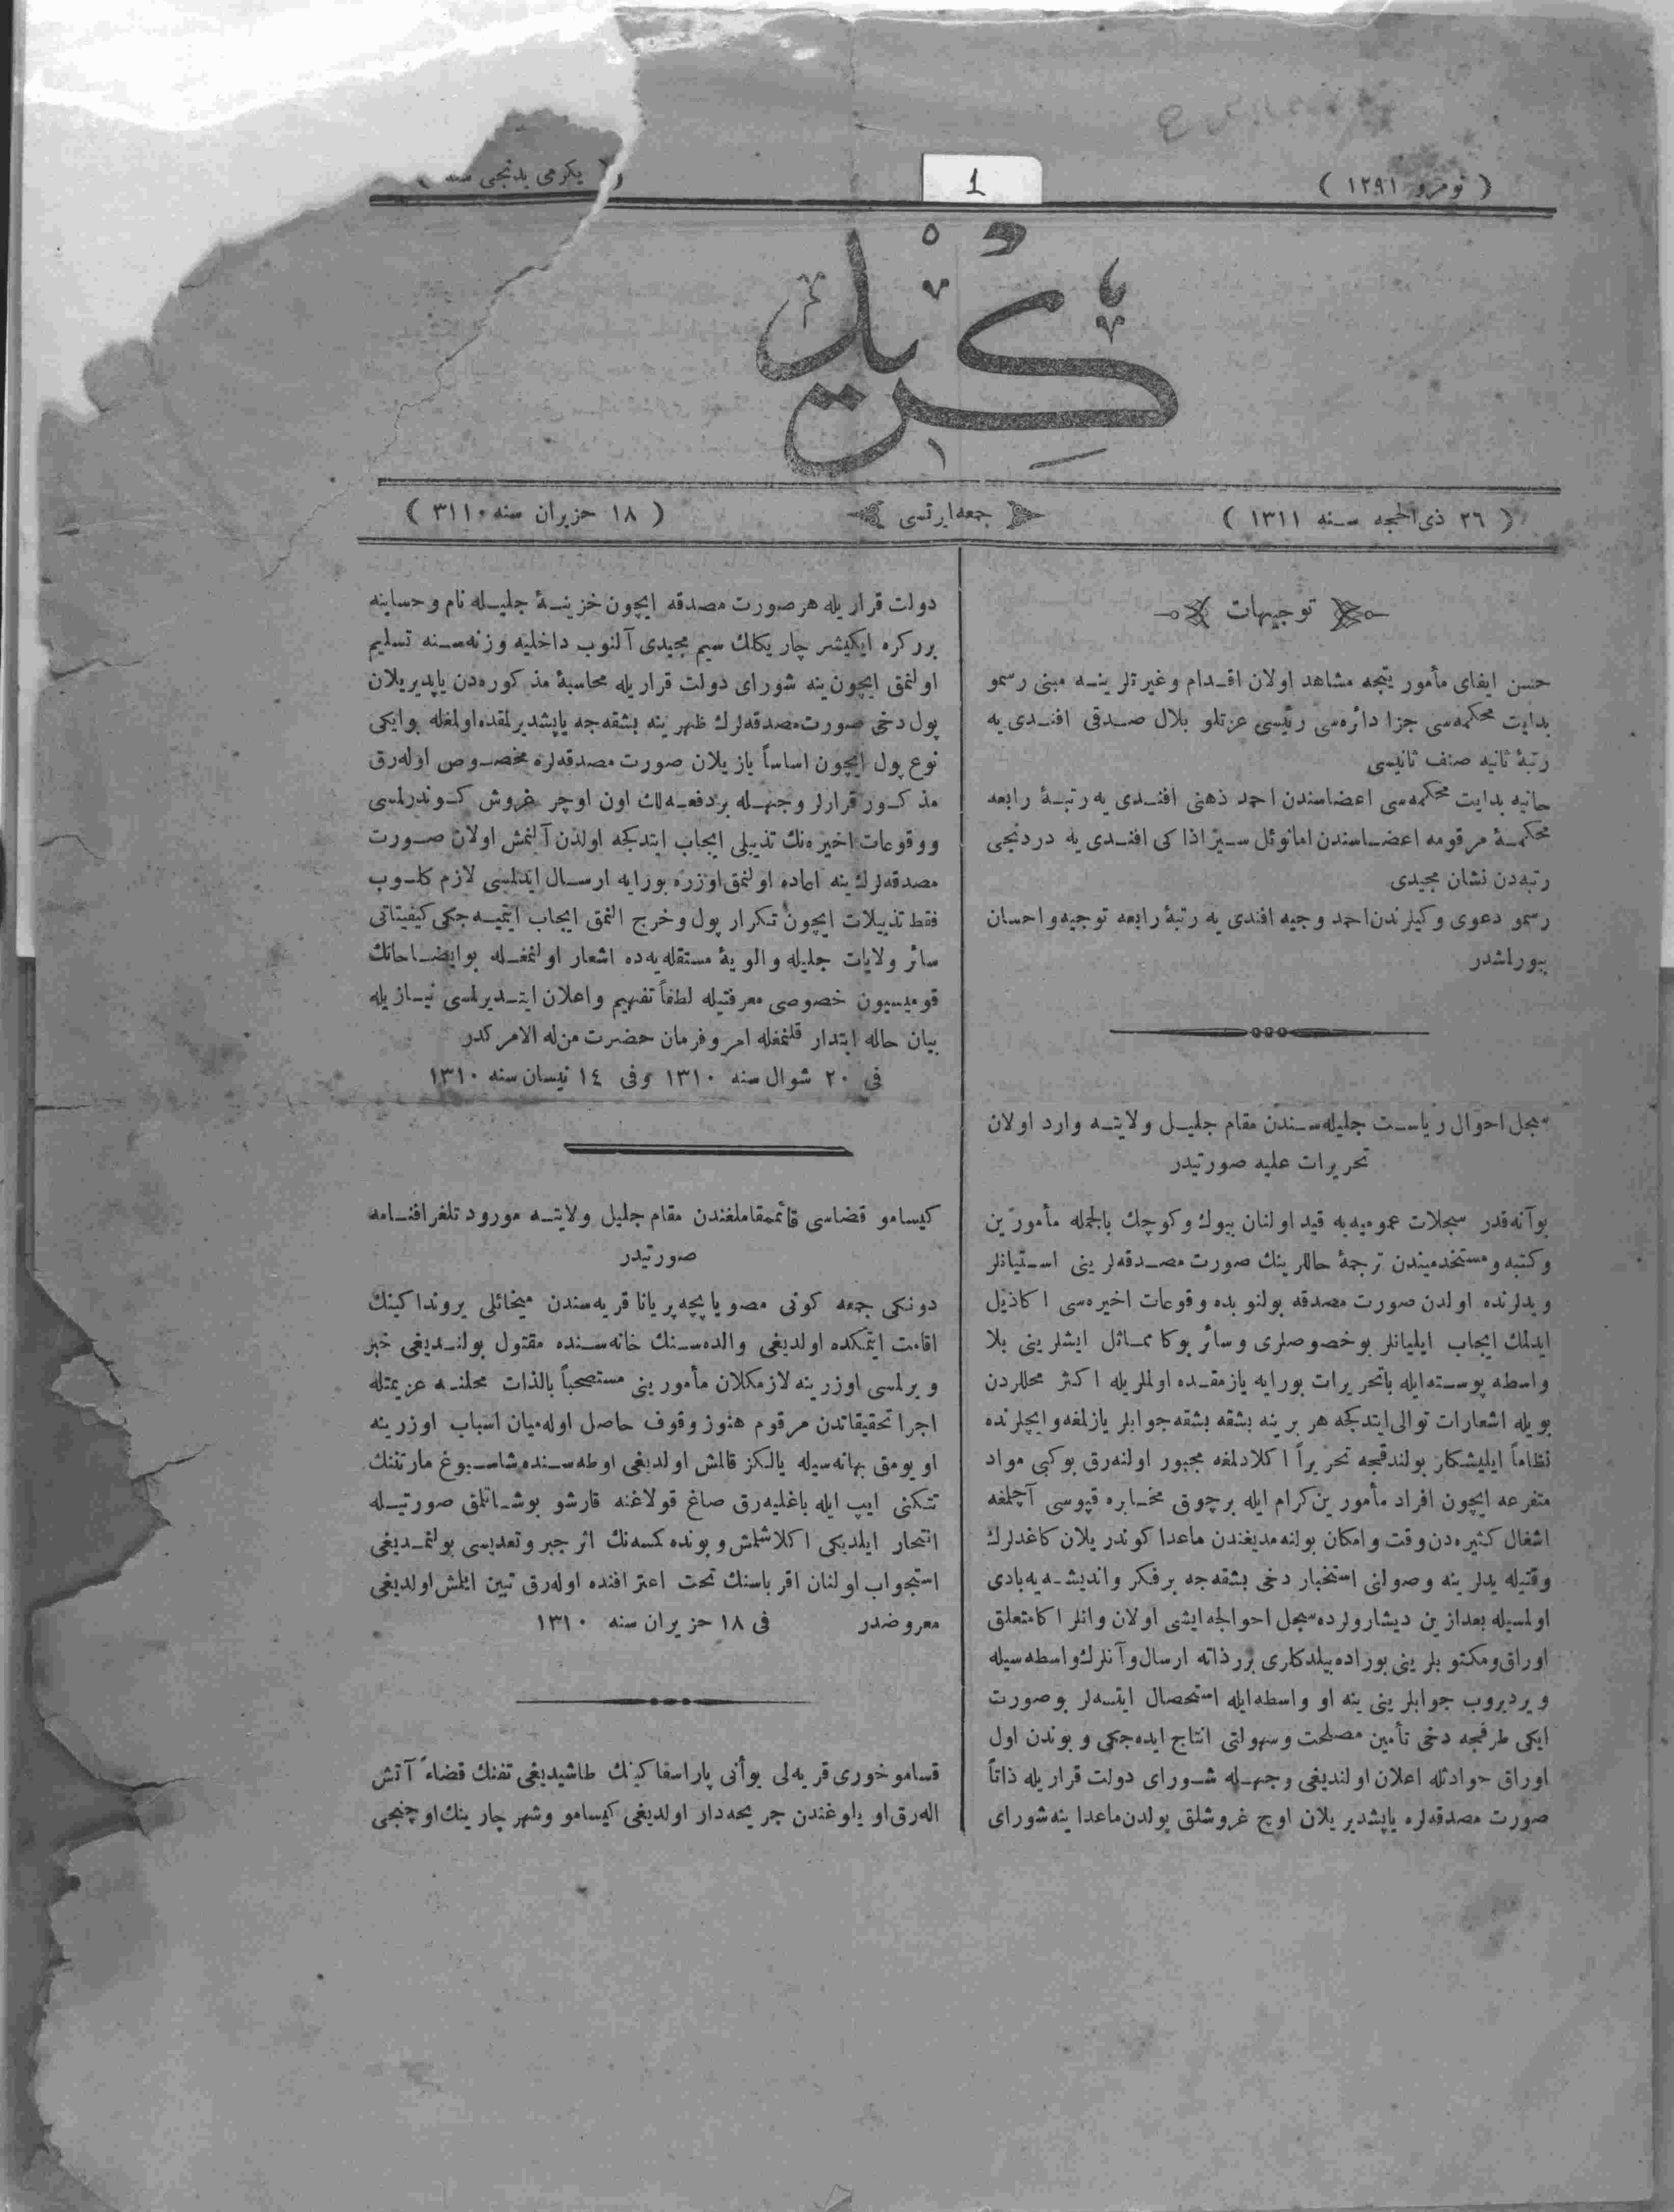 ( نومرو ١٢٩١ )
1
( يكرمی يدنجی سنه
كريد
( ٢٦ ذی الحجه سـنه ١٣١١ )
جمعه ايرتسی
( ١٨ حزيران سنه ٣١١٠ )
توجيهات
حسن ايفای مأموريتجه مشاهد اولان اقـدام وغيرتلرينـه مبنی رسمو
بدايت محكمه‌سی جزا دائره‌سی رئيسی عزتلو بلال صـدقی افنـدی‌يه
رتبهٔ ثانيه صنف ثانيسی
حانيه بدايت محكمه‌سی اعضاسندن احمد ذهنی افنـدی يه رتبـهٔ رابعه
محكمـهٔ مرقومه اعضـاسندن امانوئل سـيزاذا كی افنـدی يه دردنجی
رتبه‌دن نشان مجيدی
رسمو دعوی وكيلرندن احمد وجيه افندی يه رتبهٔ رابعه توجيه واحسان
بيورلشدر
سجل احوال رياسـت جليله‌سـندن مقام جليـل ولايتـه وارد اولان
تحريرات عليه صورتيدر
بوآنه‌قدر سجلات عموميه‌يه قيد اولنان بيوك وكوچك بالجمله مأمورين
وكتبه ومستخدميندن ترجمهٔ حاللرينك صورت مصـدقه‌لرينی اسـتيانلر
ويدلرنده اولدن صورت مصدقه بولنوبده وقوعات اخيره‌سی اكاذيل
ايدلمك ايجاب ايليانلر بوخصوصلری وسائر بوكا ممـاثل ايشلرينی بلا
واسطه پوسـته‌ايله ياتحريرات بورايه يازمقـده اولملريله اكثر محللردن
بويله اشعارات توالی ايتدكجه هر برينه بشقه بشقه جوابلر يازلمغه وايچلرنده
نظاماً ايليشكلر بولندقجه تحريراً اكلادلمغه مجبور اولنه‌رق بوكبی مواد
متفرعه ايچون افراد مأمورين كرام ايله برچوق مخـابره قپوسی آچلمغه
اشغال كثيره‌دن وقت وامكان بولنه‌مديغندن ماعدا كوندريلان كاغدلرك
وقتيله يدلرينه وصولنی استخبار دخی بشقه‌جه برفكر وانديشـه‌يه بادی
اولمسيله بعدازين ديشارولرده سجل احوالجه ايشی اولان وانلر اكا متعلق
اوراق ومكتوبلرينی بوراده بيلدكلری برر ذاته ارسال وآنلرك واسطه‌سيله
ويرديروب جوابلرينی ينه او واسطه‌ايله استحصال ايتسه‌لر بوصورت
ايكی طرفجه دخی تأمين مصلحت وسهولتی انتاج ايده‌جكی و بوندن اول
اوراق حوادثله اعلان اولنديغی وجهـله شـورای دولت قراريله ذاتاً
صورت مصدقه‌لره ياپشديريلان اوچ غروشلق پولدن ماعدا ينه شورای
دولت قراريله هر صورت مصدقه ايچون خزينـهٔ جليـله نام وحسابنه
برركره ايكيشر چاريكلك سيم مجيدی آلنوب داخليه وزنه‌سـنه تسليم
اولنمق ايچون ينه شورای دولت قراريله محاسبهٔ مذكوره‌دن ياپديريلان
پول دخی صورت مصدقه‌لرك ظهرينه بشقه‌جه ياپشديرلمقده اولمغله بوايكی
نوع پول ايچون اساساً يازيلان صورت مصدقه‌لره مخصـوص اوله‌رق
مذكـور قرارلر وجهـله بردفعـه‌لك اون اوچر غروش كـوندرلمسی
ووقوعات اخيره‌نك تذييلی ايجاب ايتدكجه اولدن آلنمش اولان صـورت
مصدقه‌لرك ينه اعاده اولنمق اوزره بورايه ارسـال ايدلمسی لازم كلـوب
فقط تذييلات ايچون تكرار پول وخرج النمق ايجاب ايتميـه‌جكی كيفيتانی
سائر ولايات جليله والويهٔ مستقله‌يه‌ده اشعار اولنمغـله بوايضـاحاتك
قوميسيون خصوصی معرفتيله لطفاً تفهيم واعلان ايتـديرلمسی نيـازيله
بيان حاله ابتدار قلنمغله امروفرمان حضرت من له الامركدر
فی ٢٠ شوال سنه ١٣١٠ وفی ١٤ نيسان سنه ١٣١٠
كيسامو قضاسی قائممقاملغندن مقام جليل ولايتـه مورود تلغرافنـامه
صورتيدر
دونكی جمعه كونی مصويا پچه پريانا قريه‌سندن ميخائلی پرونداكينك
اقامت ايتمكده اولديغی والده‌سـنك خانه‌سـنده مقتول بولنـديغی خبر
ويرلمسی اوزرينه لازمكلان مأمورينی مستصحباً بالذات محلنـه عزيمتله
اجرا تحقيقاتدن مرقوم هنوز وقوف حاصل اوله‌ميان اسباب اوزرينه
اويومق بهانه‌سيله يالكز قالمش اولديغی اوطه‌سـنده شاسـبوغ مارتنك
تتكنی ايپ ايله باغليه‌رق صاغ قولاغنه قارشو بوشـاتمق صورتيـله
انتحار ايلديكی اكلاشلمش و بونده كمسه‌نك اثر جبر وتعديسی بولنمـديغی
استجواب اولنان اقرباسنك تحت اعترافنده اوله‌رق تبين ائلمش اولديغی
معروضدر فی ١٨ حزيران سنه ١٣١٠
قسامو خوری قريه‌لی يوأنی پاراسفا كينك طاشيديغی تفنك قضاءً آتش
اله‌رق او يلوغندن جريحه‌دار اولديغی كيسامو وشهر چارينك اوچنجی